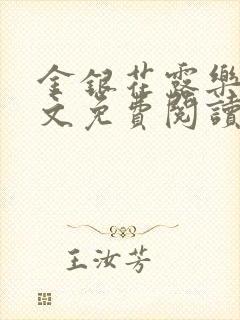 金銀花露樂
文免費閱讀
王汝芳